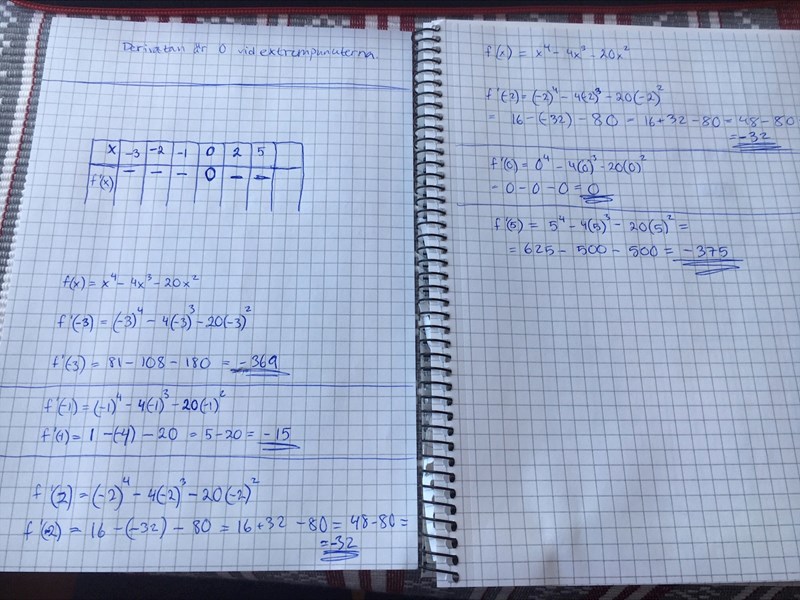 Derivatan är 0 vid extrempunkterna.
x -3 -2 -1 0 2 5
f'(x) - - - 0 - -
f(x) = x⁴ - 4x³ - 20x²
f'(-3) = (-3)⁴ - 4(-3)³ - 20(-3)²
f'(-3) = 81 - 108 - 180 = -369
f'(-1) = (-1)⁴ - 4(-1)³ - 20(-1)²
f'(-1) = 1 - (-4) - 20 = 5 - 20 = -15
f'(2) = (-2)⁴ - 4(-2)³ - 20(-2)²
f'(-2) = 16 - (-32) - 80 = 16 + 32 - 80 = 48 - 80 =
= -32
f'(x) = x⁴ - 4x³ - 20x²
f'(-2) = (-2)⁴ - 4(-2)³ - 20(-2)²
= 16 - (-32) - 80 = 16 + 32 - 80 = 48 - 80
= -32
f'(0) = 0⁴ - 4(0)³ - 20(0)²
- 0 - 0 - 0 = 0
f'(5) = 5⁴ - 4(5)³ - 20(5)² =
= 625 - 500 - 500 = -375